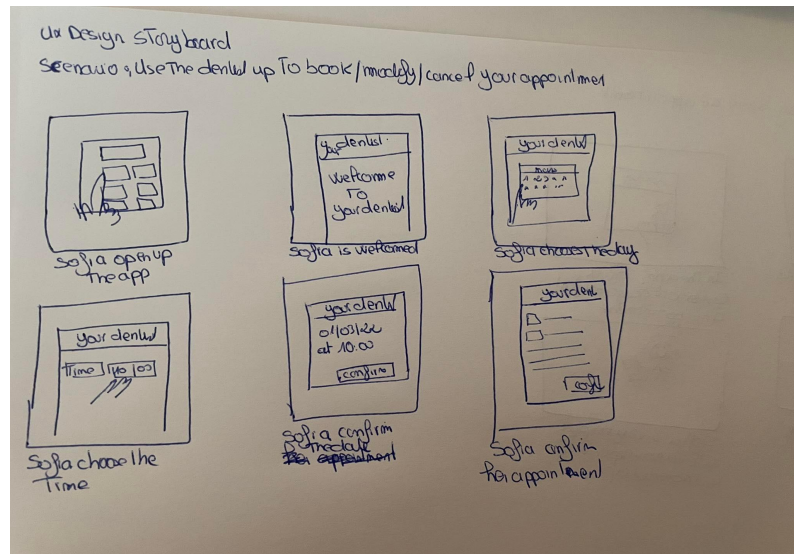 Ux Design Storyboard
Scenario, Use The dentist up To book/modify/cancel your appointment
Sofia open up
The app
your dentist
welcome
To
your dentist
Sofia is welcomed
your dentist
Sofia chooses The day
your dentist
Time 10 00
Sofia choose the
Time
your dentist
01/03/22
at 10.00
confirm
Sofia confirm
The date
your dentist
Sofia confirm
her appointment